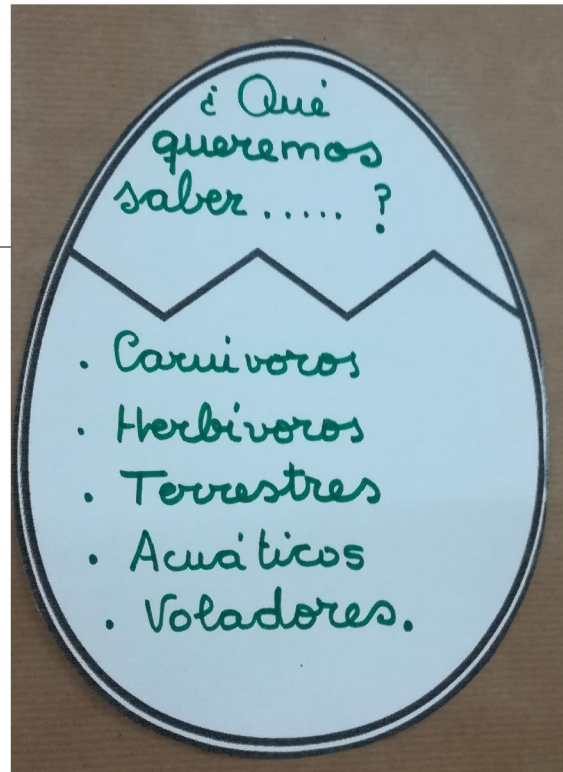 ¿Qué
queremos
saber ..... ?
. Carnívoros
. Herbívoros
. Terrestres
. Acuáticos
. Voladores.